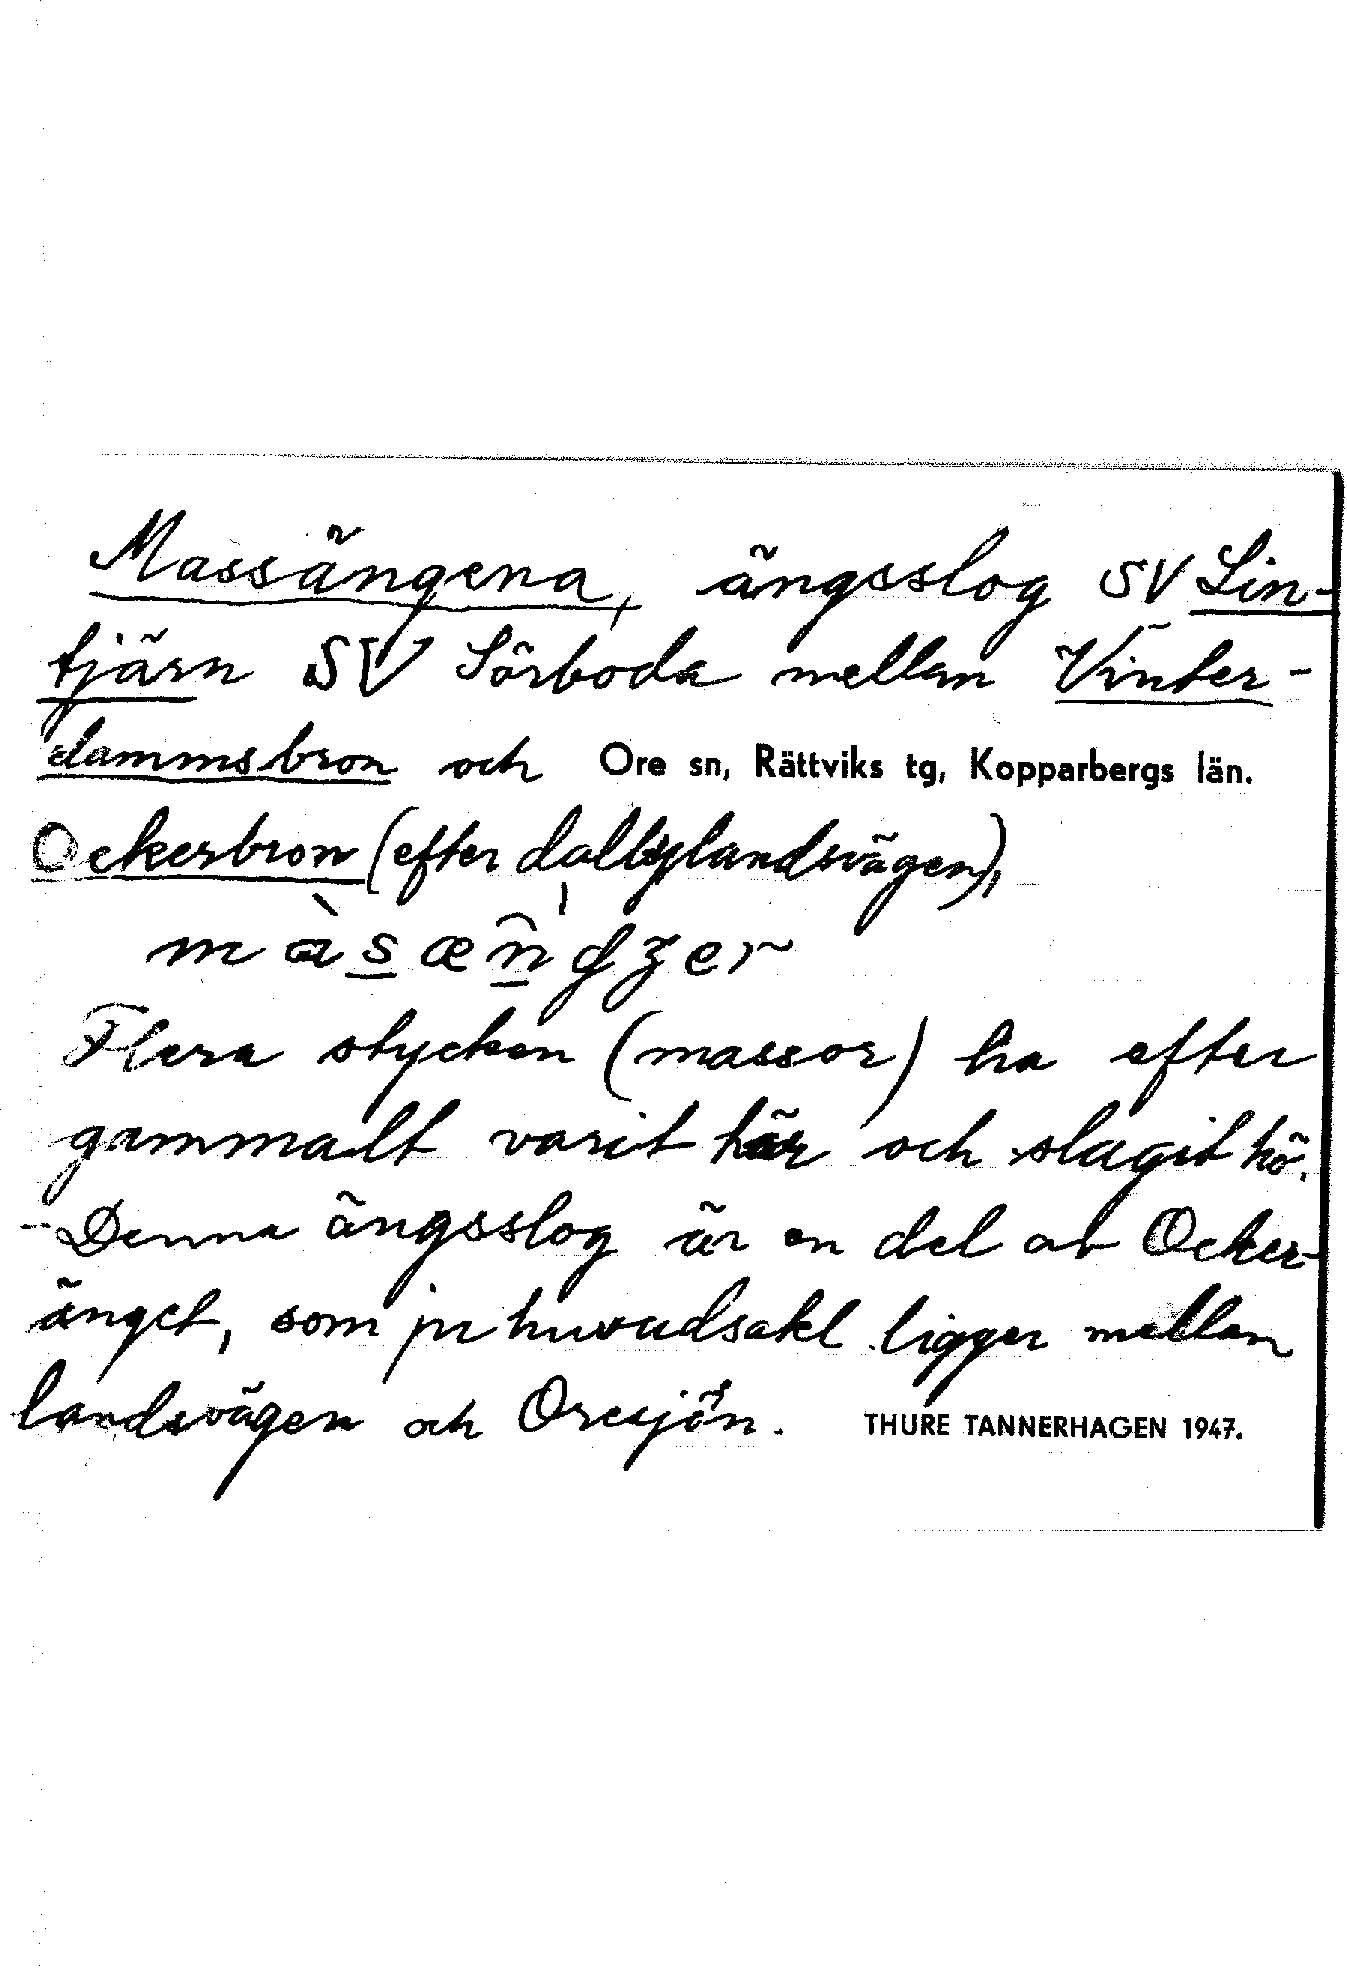 Massängena, ängsslog SV Lin-
tjärn SV Sörboda mellan Vinter-
dammsbron och Ore sn, Rättviks tg, Kopparbergs län.
Ockerbron (efter dalbylandsvägen),
màsæn̂dʒer
Flera stycken (massor) ha efter
gammalt varit här och slagit hö.
- Denna ängsslog är en del av Ocker-
änget, som ju huvudsakl ligger mellan
landsvägen och Oresjön. THURE TANNERHAGEN 1947.